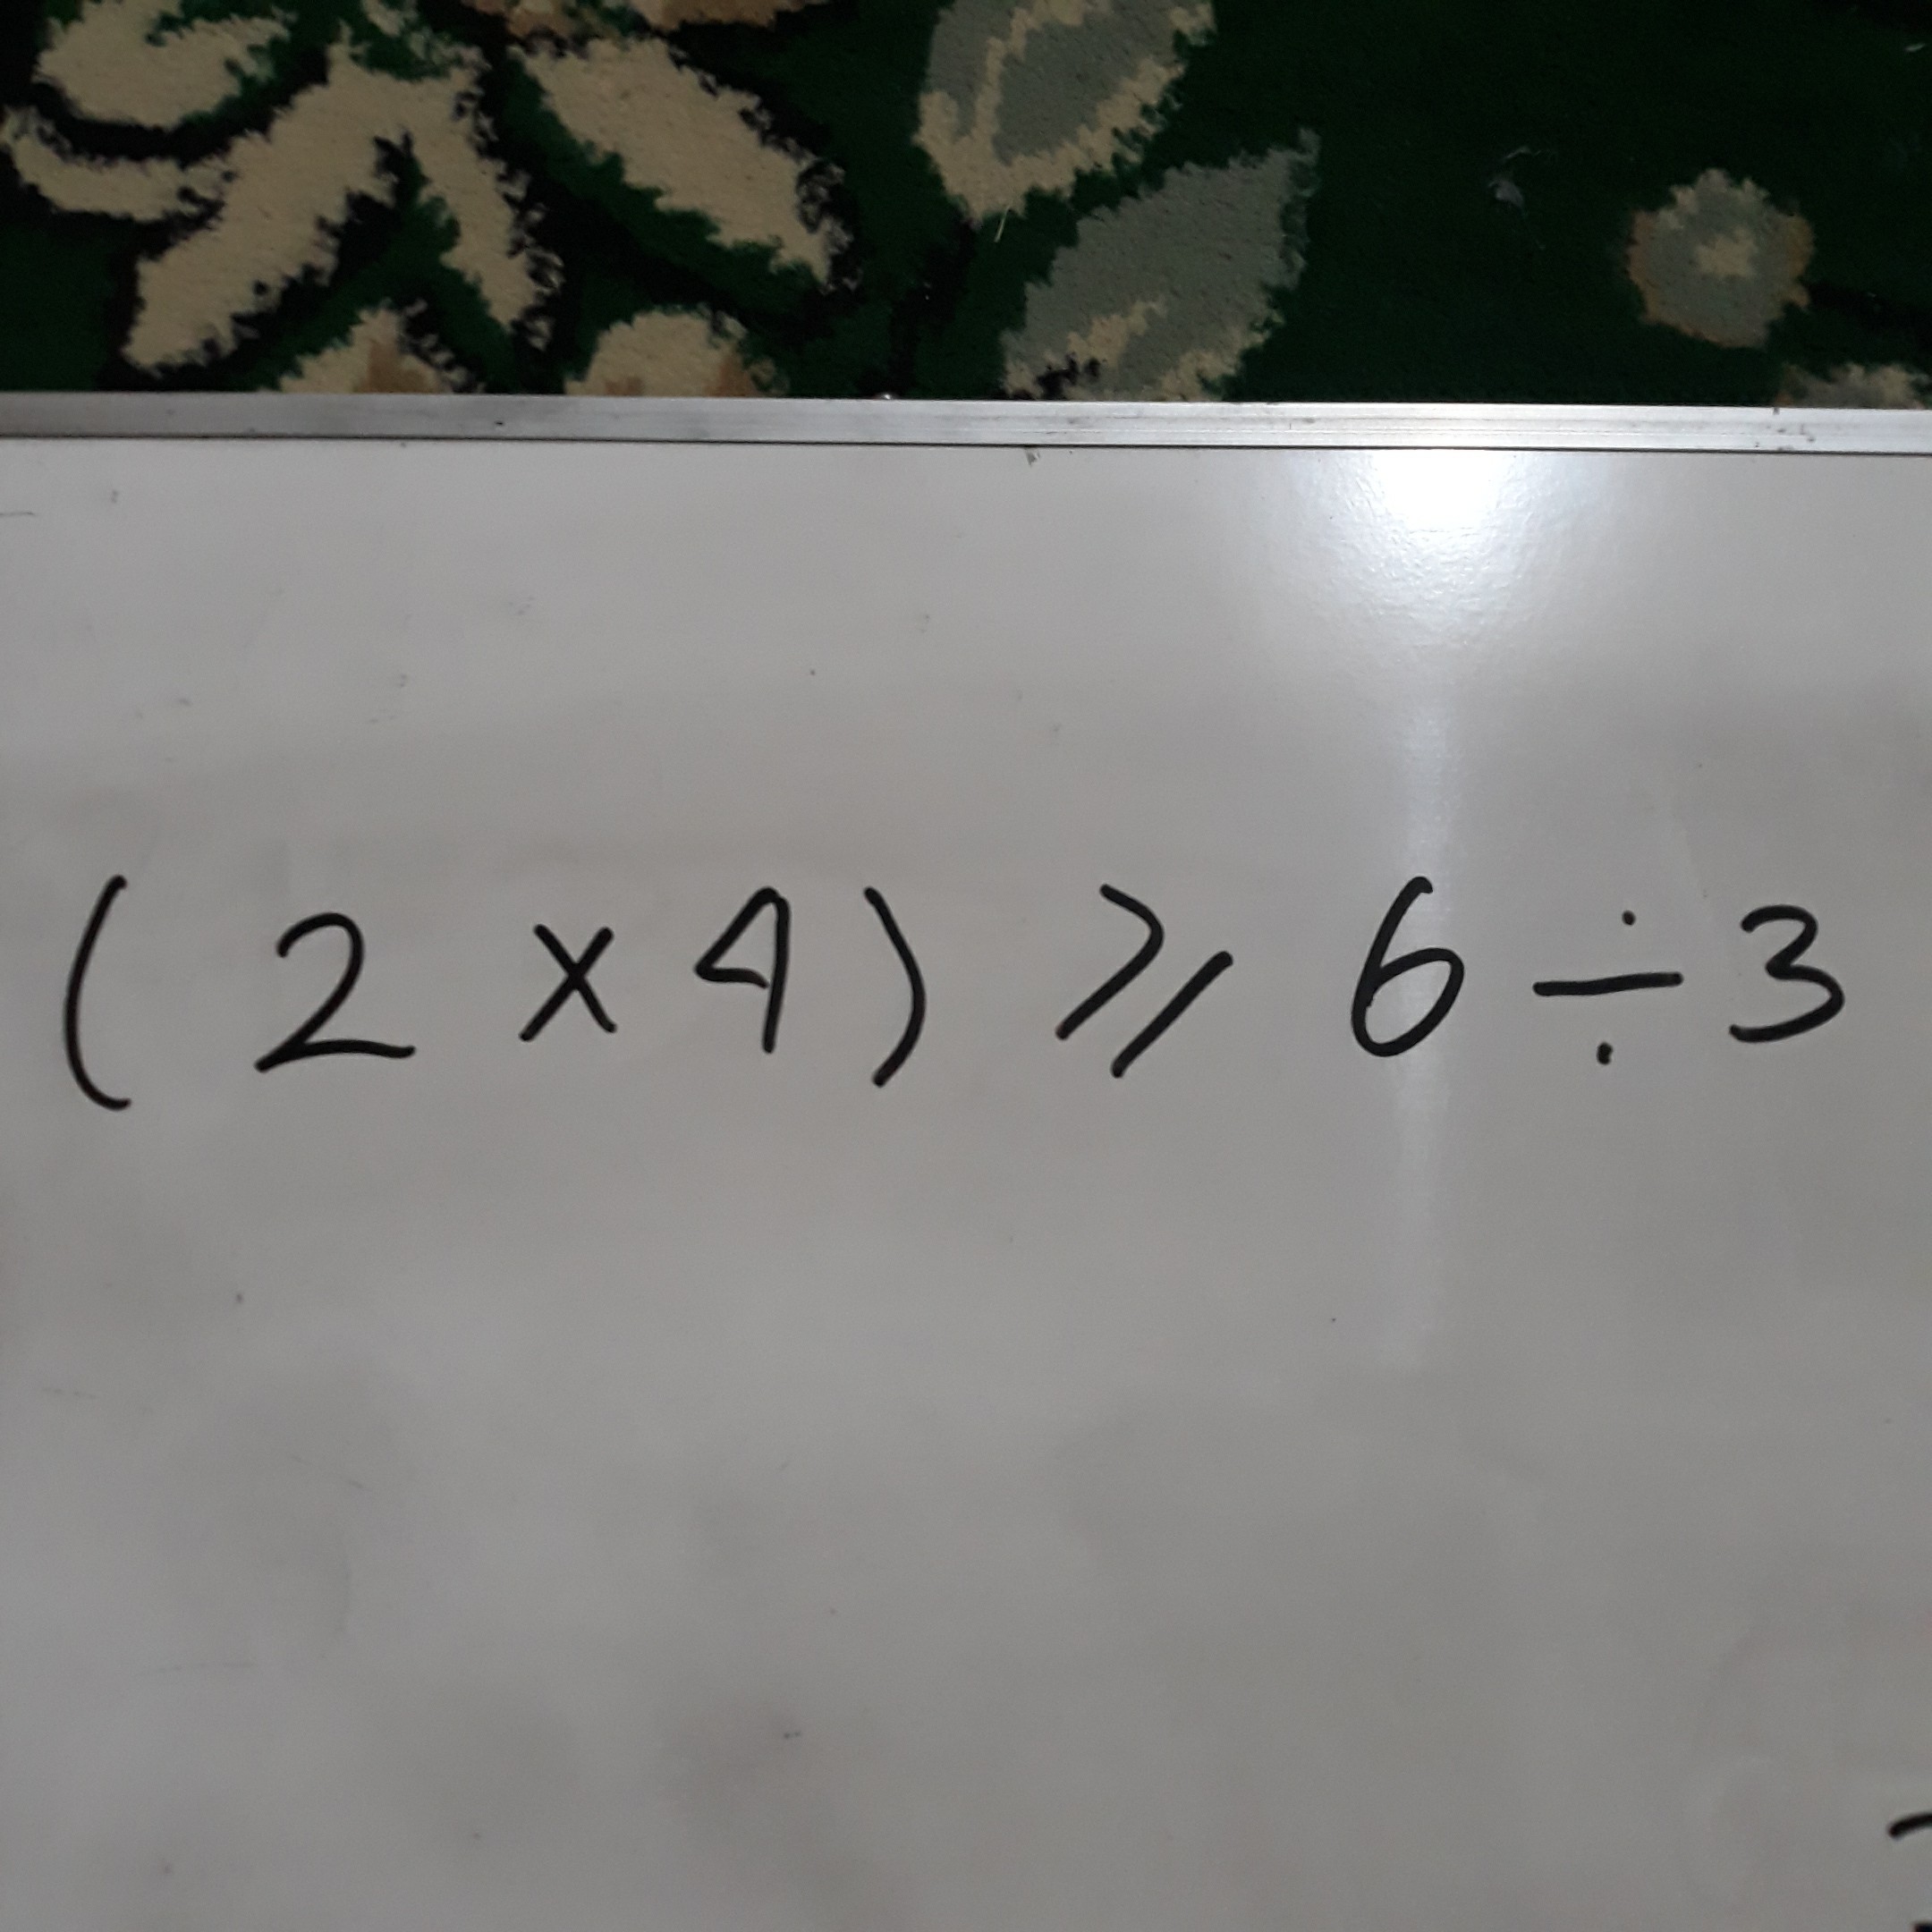 ( 2 × 4 ) ⩾ 6 ÷ 3